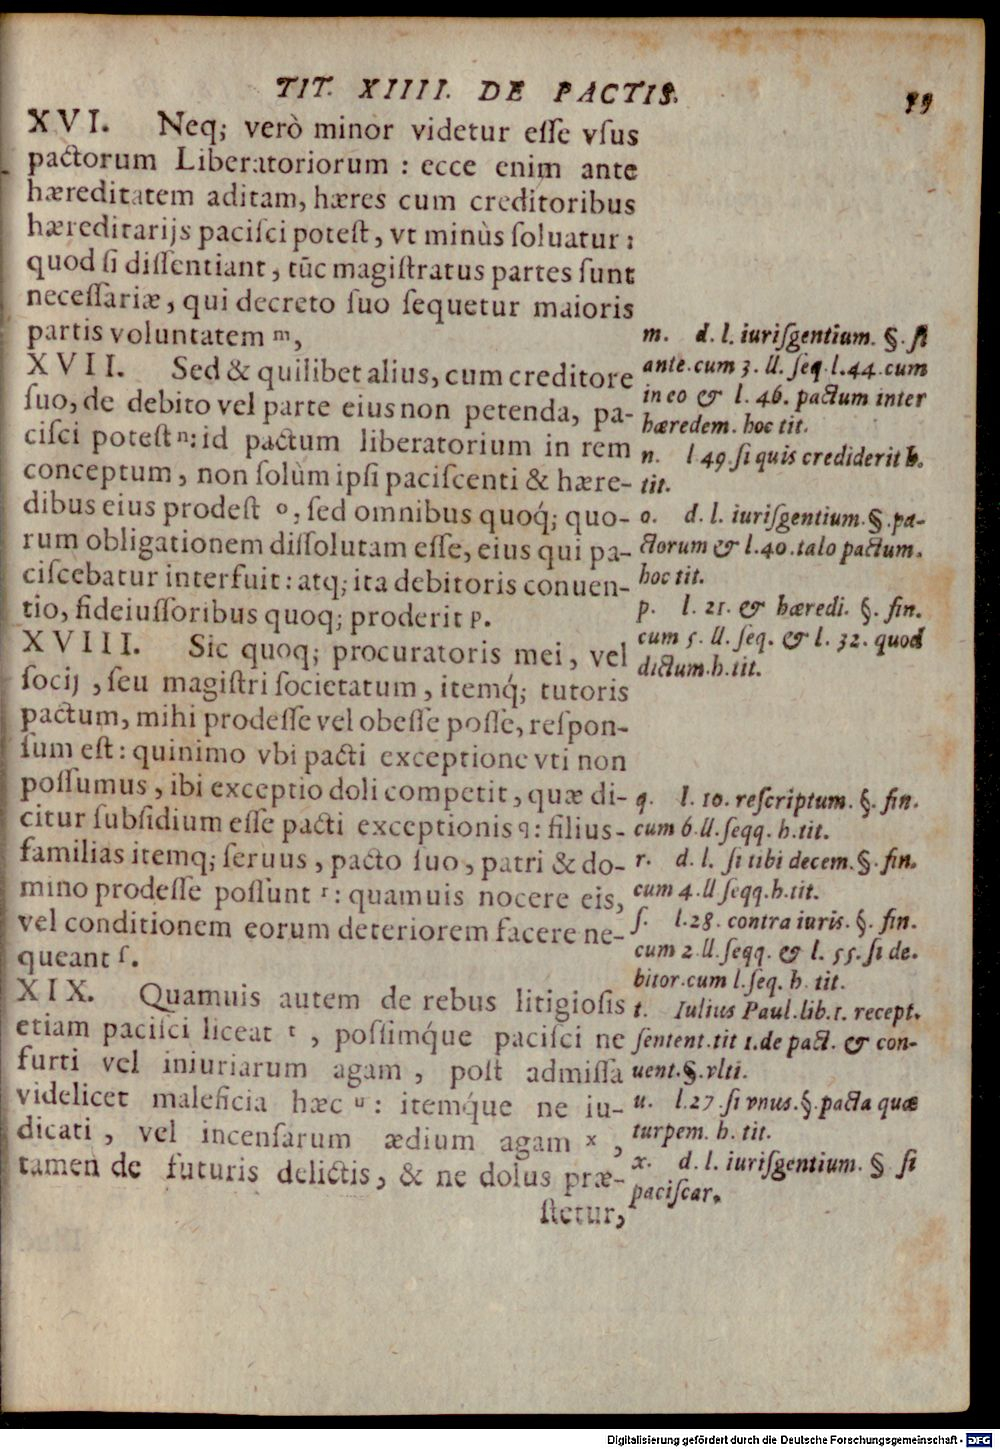 TIT. XIIII. DE PACTIS.
XVI. Neq; verò minor videtur eſſe vſus
pactorum Liberatoriorum : ecce enim ante
hæreditatem aditam, hæres cum creditoribus
hæreditarijs paciſci poteſt, vt minùs ſoluatur :
quod ſi diſſentiant, tūc magiſtratus partes ſunt
neceſſariæ, qui decreto ſuo ſequetur maioris
partis voluntatem m,
XVII. Sed & quilibet alius, cum creditore
ſuo, de debito vel parte eius non petenda, pa-
ciſci poteſt n: id pactum liberatorium in rem
conceptum, non ſolùm ipſi paciſcenti & hære-
dibus eius prodeſt o, ſed omnibus quoq́; quo-
rum obligationem diſſolutam eſſe, eius qui pa-
ciſcebatur interfuit: atq; ita debitoris conuen-
tio, fideiuſſoribus quoq; proderit p.
XVIII. Sic quoq; procuratoris mei, vel
ſocij, ſeu magiſtri ſocietatum, itemq́; tutoris
pactum, mihi prodeſſe vel obeſſe poſſe, reſpon-
ſum eſt: quinimo vbi pacti exceptione vti non
poſſumus, ibi exceptio doli competit, quæ di-
citur ſubſidium eſſe pacti exceptionis q: filius-
familias itemq; ſeruus, pacto ſuo, patri & do-
mino prodeſſe poſſunt r: quamuis nocere eis,
vel conditionem eorum deteriorem facere ne-
queant ſ.
XIX. Quamuis autem de rebus litigioſis
etiam paciſci liceat t, poſſimq́ue paciſci ne
furti vel iniuriarum agam, poſt admiſſa
videlicet maleficia hæc u: itemq́ue ne iu-
dicati, vel incenſarum ædium agam x,
tamen de futuris delictis, & ne dolus præ-
ſtetur,
m. d. l. iuriſgentium. §. ſi
ante. cum 3. ll. ſeq. l. 44. cum
in eo & l. 46. pactum inter
hæredem. hoc tit.
n. l 49. ſi quis crediderit h.
tit.
o. d. l. iuriſgentium. §. pa-
ctorum & l. 40. talo pactum.
hoc tit.
p. l. 21. & hæredi. §. fin.
cum 5. ll. ſeq. & l. 32. quod
dictum. h. tit.
q. l. 10. reſcriptum. §. fin.
cum 6. ll. ſeqq. h. tit.
r. d. l. ſi tibi decem. §. fin.
cum 4. ll ſeqq. h. tit.
ſ. l. 28. contra iuris. §. fin.
cum 2. ll. ſeqq. & l. 55. ſi de-
bitor. cum l. ſeq. h. tit.
t. Iulius Paul. lib. 1. recept.
ſentent. tit 1. de pact. & con-
uent. §. vlti.
u. l. 27. ſi vnus. §. pacta quæ
turpem. h. tit.
x. d. l. iuriſgentium. § ſi
paciſcar.
Digitalisierung gefördert durch die Deutsche Forschungsgemeinschaft - DFG